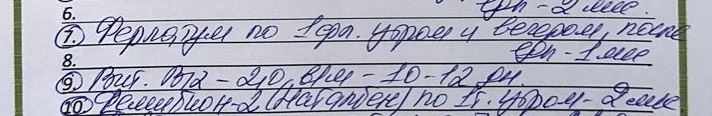 6. еды - 2 мес.
7. Ферлатум по 1 фл. утром и вечером, после
8. еды - 1 мес
9. Вит. В12 - 2,0 в/м - 10-12 дн.
10. Фемибион-2 (Натальбен) по 1 т. утром - 2 мес